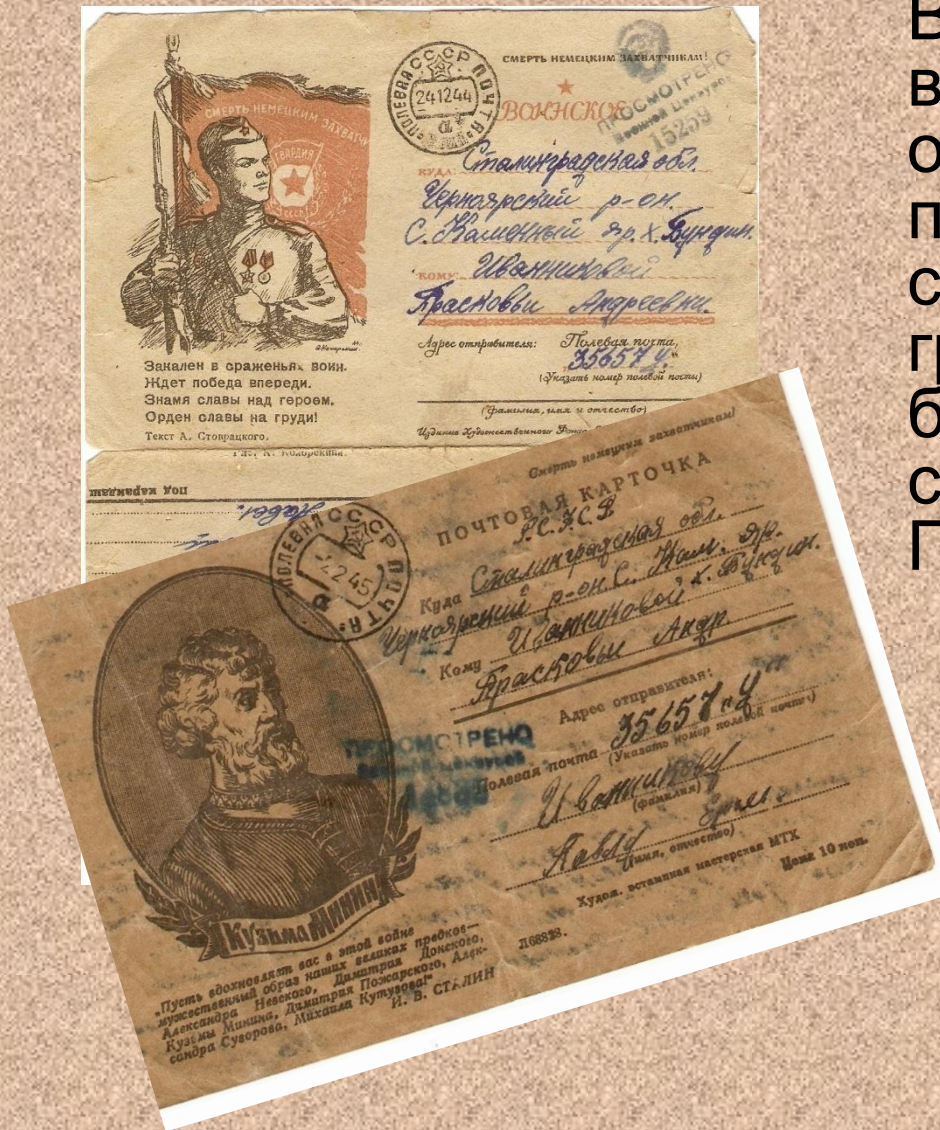 СМЕРТЬ НЕМЕЦКИМ ЗАХВАТЧИКАМ!
ПОЛЕВАЯ ПОЧТА СССР
241244
а
ВОИНСКОЕ
ПРОСМОТРЕНО
Военной Цензурой
15259
СМЕРТЬ НЕМЕЦКИМ ЗАХВАТЧ
ГВАРДИЯ
КУДА: Сталинградская обл.
Черноярский р-он.
С. Каменный яр. х. Бундин.
КОМУ: Иванниковой
Прасковьи Андреевни.
Адрес отправителя: Полевая почта,
35657 Ч."
(Указать номер полевой почты)
(фамилия, имя и отчество)
Закален в сраженьях воин.
Ждет победа впереди.
Знамя славы над героем.
Орден славы на груди!
Текст А. Стоврацкого.
Издание Художественного
под карандаш
Смерть немецким захватчикам!
ПОЧТОВАЯ КАРТОЧКА
Р.С.Ф.С.Р
ПОЛЕВАЯ ПОЧТА СССР
2 45
Куда Сталинградская обл.
Черноярский р-он. С. Кам. яр.
х. Бундин.
Кому Иванниковой
Прасковьи Андр.
Адрес отправителя:
Полевая почта 35657 „Ч"
(Указать номер полевой почты)
ПРОСМОТРЕНО
Иванникову
(фамилия)
Павлу
(имя, отчество)
Худож. эстампная мастерская МТХ
Цена 10 коп.
Л68828.
Кузьма Минин
„Пусть вдохновляет вас в этой войне
мужественный образ наших великих предков—
Александра Невского, Димитрия Донского,
Кузьмы Минина, Димитрия Пожарского, Алек-
сандра Суворова, Михаила Кутузова!"
И. В. СТАЛИН